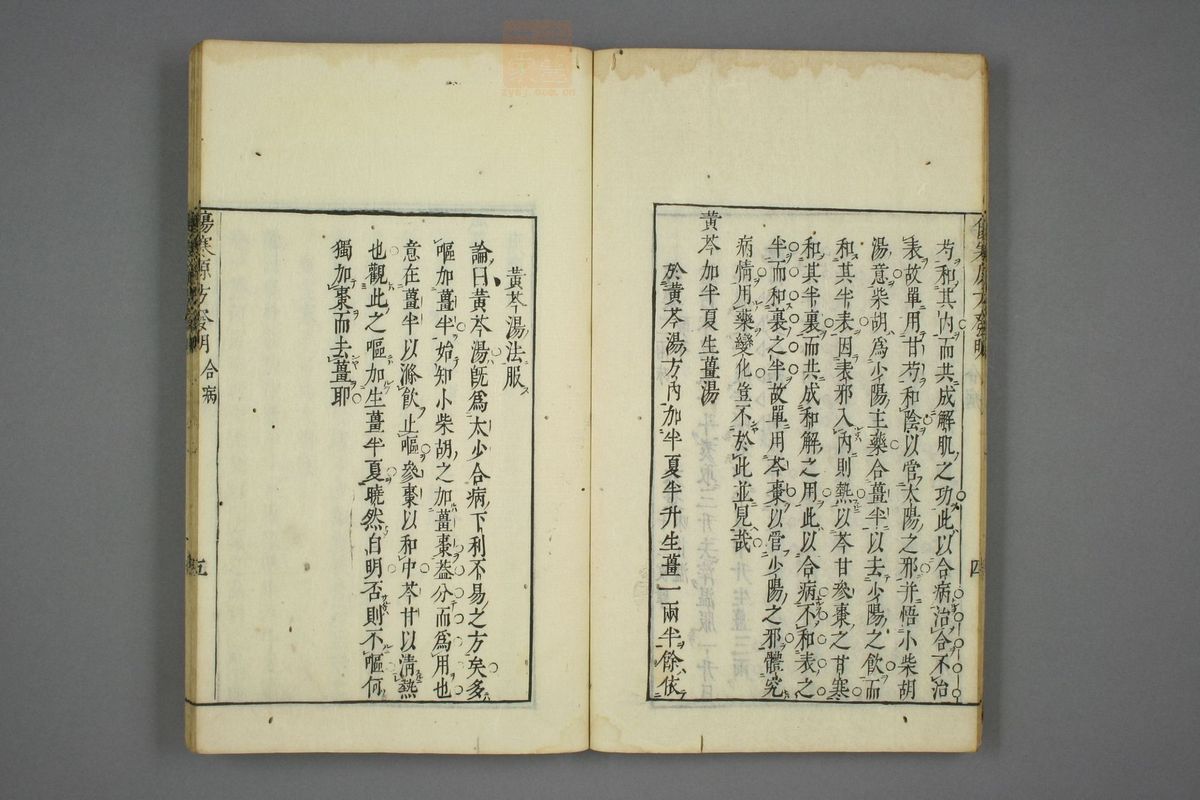 芍和其內而共成解肌之功此以合病治合不治
表故單用甘芍和陰以管太陽之邪并悟小柴胡
湯意柴胡爲少陽主藥合薑半以去少陽之飲而
和其半表因表邪入內則熱以芩甘參棗之甘寒
和其半裏而共成和解之用此以合病不和表之
半而和裏之半故單用芩棗以管少陽之邪體究
病情用藥變化豈不於此並見哉
黃芩加半夏生薑湯
於黃芩湯方內加半夏半升生薑一兩半餘依
四
黃芩湯法服
論曰黃芩湯旣爲太少合病下利不易之方矣多
嘔加薑半始知小柴胡之加薑棗葢分而爲用也
意在薑半以滌飲止嘔參棗以和中芩甘以清熱
也觀此之嘔加生薑半夏曉然自明否則不嘔何
獨加棗而去薑耶
傷寒原方發明 合病
五
zysj.com.cn